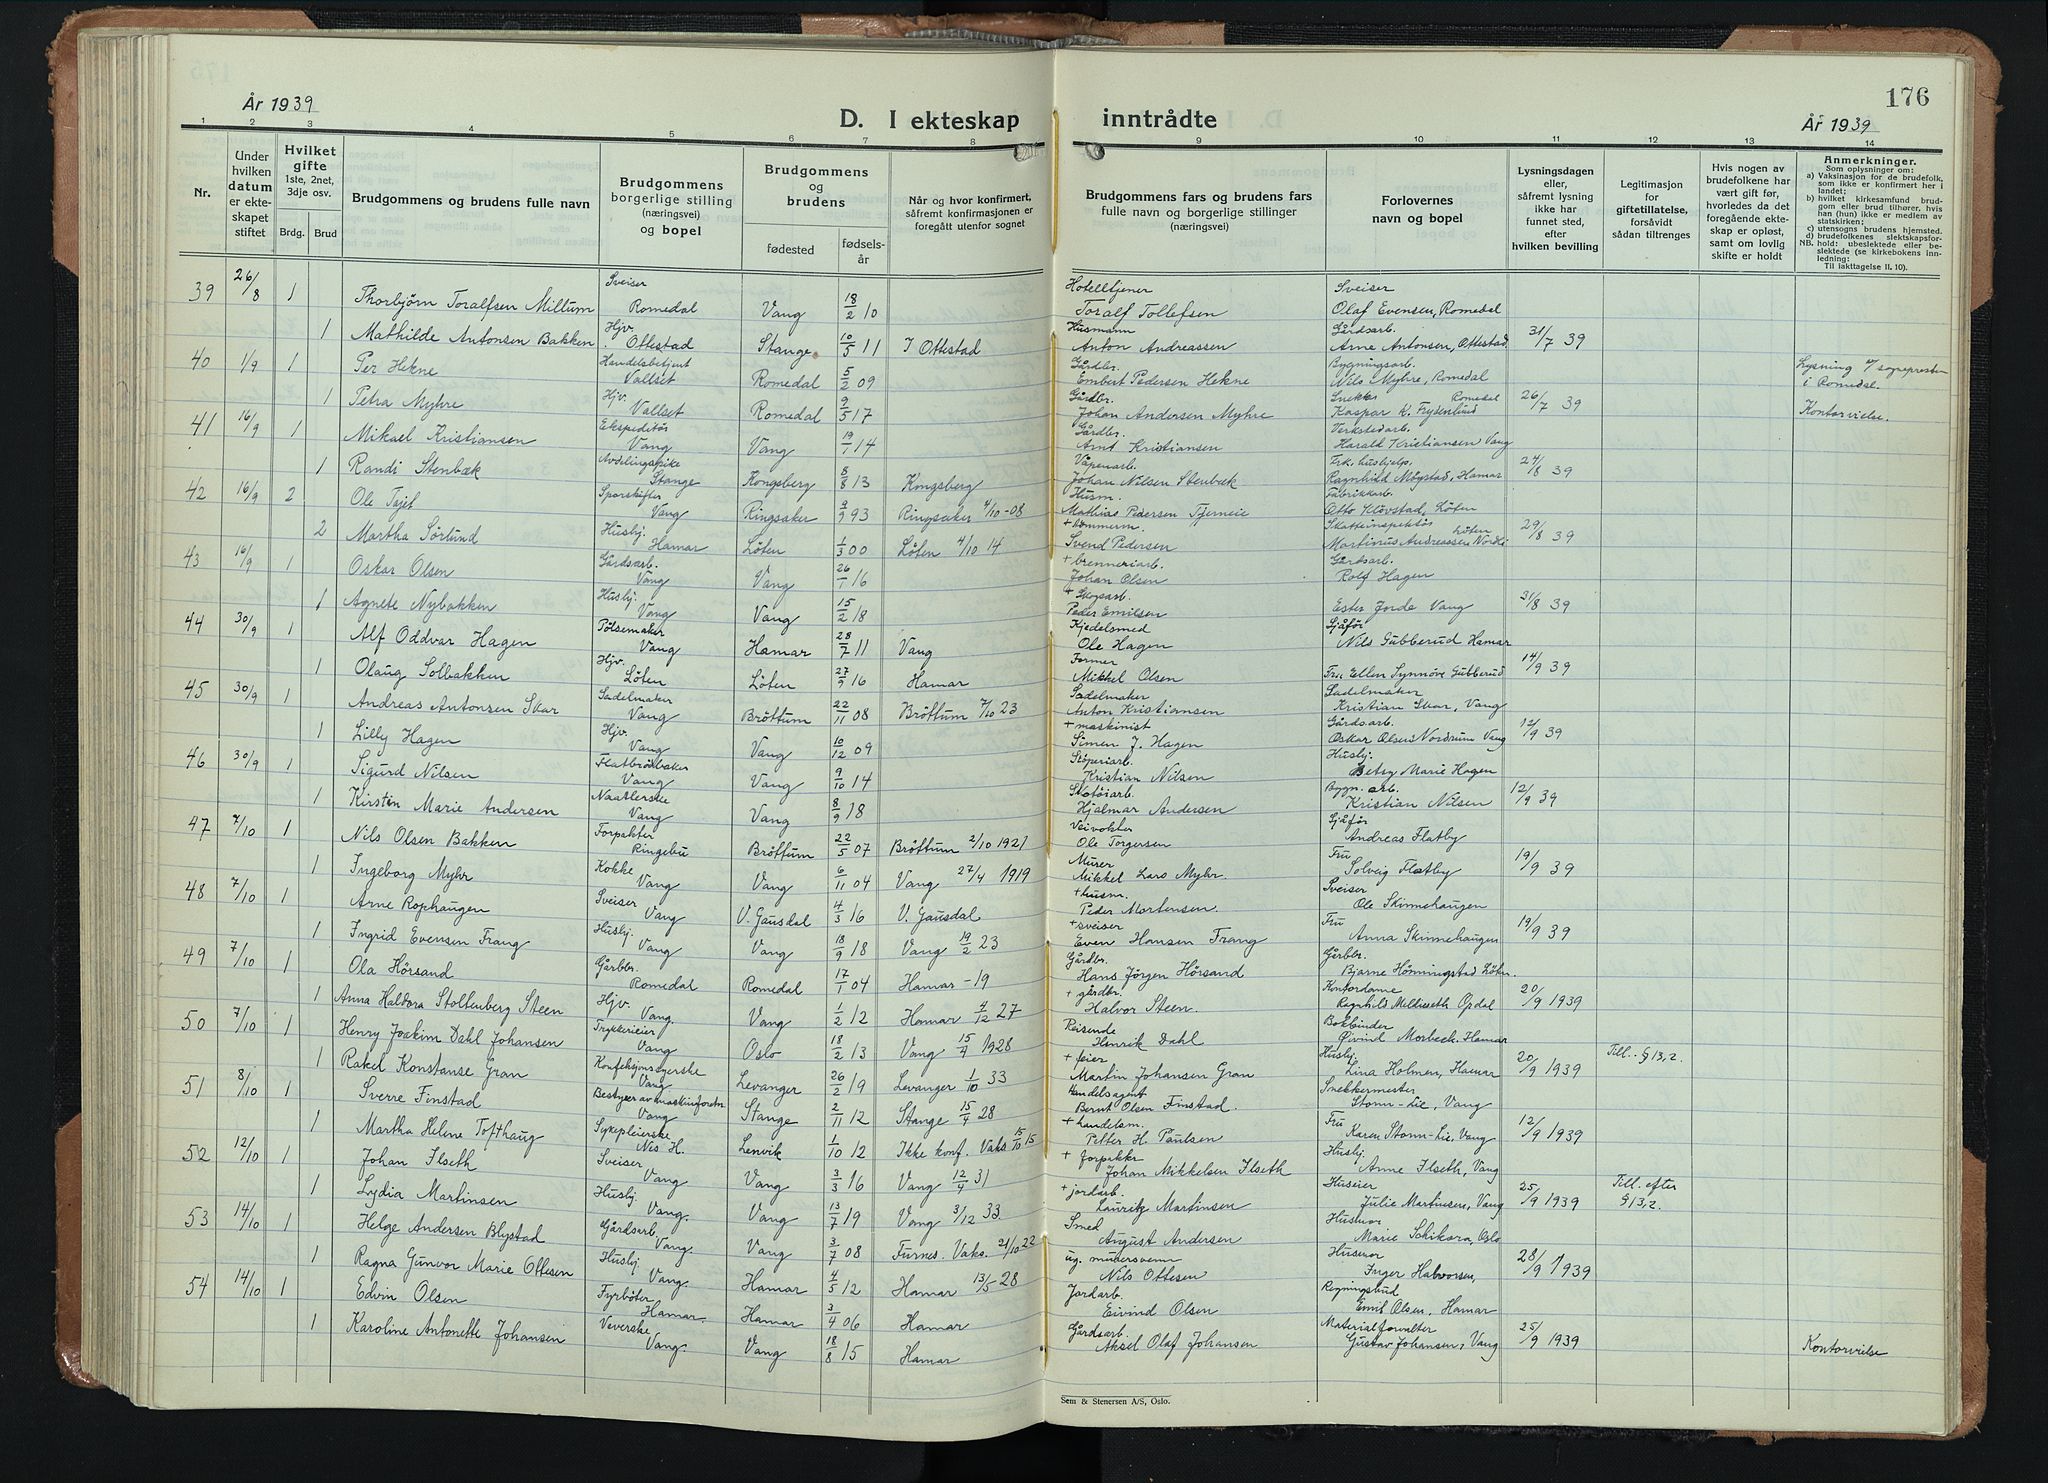 176
År 1939
D. I ekteskap inntrådte
År 1939
1 2 3 4 5 6 7 8 9 10 11 12 13 14
Nr.
Under hvilken datum er ekteskapet stiftet
Hvilket gifte 1ste, 2net, 3dje osv.
Brdg. Brud
Brudgommens og brudens fulle navn
Brudgommens borgerlige stilling (næringsvei) og bopel
Brudgommens og brudens
fødested fødselsår
Når og hvor konfirmert, såfremt konfirmasjonen er foregått utenfor sognet
Brudgommens fars og brudens fars fulle navn og borgerlige stillinger (næringsvei)
Forlovernes navn og bopel
Lysningsdagen eller, såfremt lysning ikke har funnet sted, efter hvilken bevilling
Legitimasjon for giftetillatelse, forsåvidt sådan tiltrenges
Hvis nogen av brudefolkene har vært gift før, hvorledes da det foregående ekteskap er opløst, samt om lovlig skifte er holdt
Anmerkninger.
Som oplysning om:
a) Vaksinasjon for de brudefolk, som ikke er konfirmert her i landet;
b) hvilket kirkesamfund brudgom eller brud tilhører, hvis han (hun) ikke er medlem av statskirken;
c) utensogns brudens hjemsted.
d) brudefolkenes slektskapsforhold: ubeslektede eller beslektede (se kirkebokens innledning:
NB.
Til iakttagelse II. 10).
39 26/8 1 Thorbjørn Toralfsen Millum Sveiser Romedal Vang 18/2 10 Hotelltjener Toralf Tollefsen Sveiser Olaf Evensen, Romedal
1 Mathilde Antonsen Bakken Hjv. Ottestad Stange 10/5 11 I Ottestad Husmann Anton Andreassen Gårdsarb. Arne Antonsen, Ottestad 31/7 39
40 1/9 1 Per Hekne Handelsbetjent Vallset Romedal 5/2 09 Gårdbr. Embert Pedersen Hekne Bygningsarb. Nils Myhre, Romedal Lysning v/ sognepresten i Romedal.
1 Petra Myhre Hjv. Vallset Romedal 9/5 17 Gårdbr. Johan Andersen Myhre Snekker Romedal Kaspar K. Frydenlund 26/7 39 Kontorvielse.
41 16/9 1 Mikael Kristiansen Ekspeditør Vang Vang 19/1 14 Gårdbr. Arnt Kristiansen Verkstedarb. Harald Kristiansen Vang
1 Randi Stenbæk Avdelingspike Stange Kongsberg 8/8 13 Kongsberg Våpenarb. Johan Nilsen Stenbæk Frk. hushjelp. Ragnhild Mögstad, Hamar 24/8 39
42 16/9 2 Ole Tajet Sporskifter Vang Ringsaker 3/9 93 Ringsaker 4/10-08 Husm. Mathias Pedersen Tjerneie Fabrikkarb. Otto Klövstad, Löten
2 Martha Sörlund Husbj. Hamar Löten 1/3 00 Löten 4/10 14 + tömmerm. Svend Pedersen Skatteinspektör Löten Martinus Andreassen Nordli 29/8 39
43 16/9 1 Oskar Olsen Gårdsarb. Vang Vang 26/1 16 + brenneriarb. Johan Olsen Gårdsarb. Rolf Hagen
1 Agnete Nybakken Husbj. Vang Vang 15/2 18 + Skogsarb. Peder Emilsen Ester Jorde Vang 31/8 39
44 30/9 1 Alf Oddvar Hagen Pölsemaker Vang Hamar 28/7 11 Vang Kjedelsmed Ole Hagen Sjåför Nils Gubberud Hamar
1 Olaug Solbakken Hjv. Löten Löten 27/9 16 Hamar Former Mikkel Olsen Fru Ellen Synnöve Gubberud 14/9 39
45 30/9 1 Andreas Antonsen Skar Sadelmaker Vang Bröttum 22/11 08 Bröttum 7/10 23 Sadelmaker Anton Kristiansen Sadelmaker Kristian Skar, Vang
1 Lilly Hagen Hjv. Vang Vang 10/12 09 + maskinist Simen J. Hagen Gårdsarb. Oskar Olsen Nordrum Vang 12/9 39
46 30/9 1 Sigurd Nilsen Flatbrödbaker Vang Vang 9/10 14 Stöperiarb. Kristian Nilsen Husbj. Betsy Marie Hagen
1 Kirsten Marie Andersen Naatlerske Vang Vang 8/9 18 Skotöiarb. Hjalmar Andersen Bygn. arb. Kristian Nilsen 12/9 39
47 7/10 1 Nils Olsen Bakken Forpakter Ringebu Bröttum 22/5 07 Bröttum 2/10 1921 Veivokter Ole Torgersen Sjåför Andreas Flatby
1 Ingeborg Myhr Kokke Vang Vang 6/11 04 Vang 27/4 1919 Murer Mikkel Lars Myhr. Fru Solveig Flatby 19/9 39
48 7/10 1 Arne Rophaugen Sveiser Vang V. Gausdal 4/3 16 V. Gausdal + husm. Peder Mortensen. Sveiser Ole Skinnehaugen
1 Ingrid Evensen Frang Husbj. Vang Vang 18/9 18 Vang 19/2 23 + sveiser Even Hansen Frang Fru Anna Skinnehaugen 19/9 39
49 7/10 1 Ola Hörsand Gårbbr. Romedal Romedal 17/1 04 Hamar -19 Gårdbr. Hans Jörgen Hörsand Gårbbr. Bjarne Hönningstad Löten.
1 Anna Haldora Stoltenberg Steen Hjv. Vang. Vang 1/2 12 Hamar 4/12 27 + gårdbr. Halvor Steen. Kontordame Ragnhild Mellieseth Opdal 20/9 1939
50 7/10 1 Henry Joakim Dahl Johansen Trykkerieier Vang Oslo 18/2 13 Vang 15/4 1928 Reisende Henrik Dahl Bokbinder Øivind Morbech. Hamar
1 Rakel Konstanse Gran Konfeksjonssyerske Vang Levanger 26/2 19 Levanger 1/10 33 + feier Martin Johansen Gran Husbj. Lina Holmen, Hamar 20/9 1939 Till. § 13,2.
51 8/10 1 Sverre Finstad Bestyrer av maskinforetn. Vang Stange 2/11 12 Stange 15/4 28 Handelsagent Bernt Olsen Finstad. Snekkermester Stomn-Lie, Vang
1 Martha Helene Tofthaug Sykepleierske Nes H. Lenvik 1/10 12 Ikke konf. Vaks 15/10 15 + handelsm. Petter H. Paulsen Fru Karen Stomn-Lie, Vang 12/9 1939
52 12/10 1 Johan Ilseth Sveiser Vang Vang 3/3 16 Vang 12/4 31 + forpakter Johan Mikkelsen Ilseth Husbj. Arne Ilseth, Vang
1 Lydia Martinsen Husbj. Vang. Vang 13/7 19 Vang 3/12 33 + jordarb. Lauritz Martinsen Huseier Julie Martinsen, Vang 25/9 1939 Till. efter § 13,2.
53 14/10 1 Helge Andersen Blystad Gårdsarb. Vang. Vang 3/7 08 Furnes. Vaks. 21/10 22 Smed August Andersen Husmor Marie Schikora, Oslo
1 Ragna Gunvor Marie Ottesen Husbj. Vang. Hamar 4/5 12 Hamar 13/5 28 ug. murersvenn Nils Ottesen Husmor Inger Halvorsen, 28/9 1939
54 14/10 1 Edvin Olsen Fyrböter Hamar. Hamar 3/4 06 Hamar Jordarb. Eivind Olsen Regningsbud Emil Olsen, Hamar
1 Karoline Antonette Johansen Veverske Vang. Vang 18/8 15 Hamar Gårdsarb. Aksel Olaf Johansen Materialforvalter Gustav Johansen, Vang 25/9 1939 Kontorvielse
Sem & Stenersen A/S, Oslo.